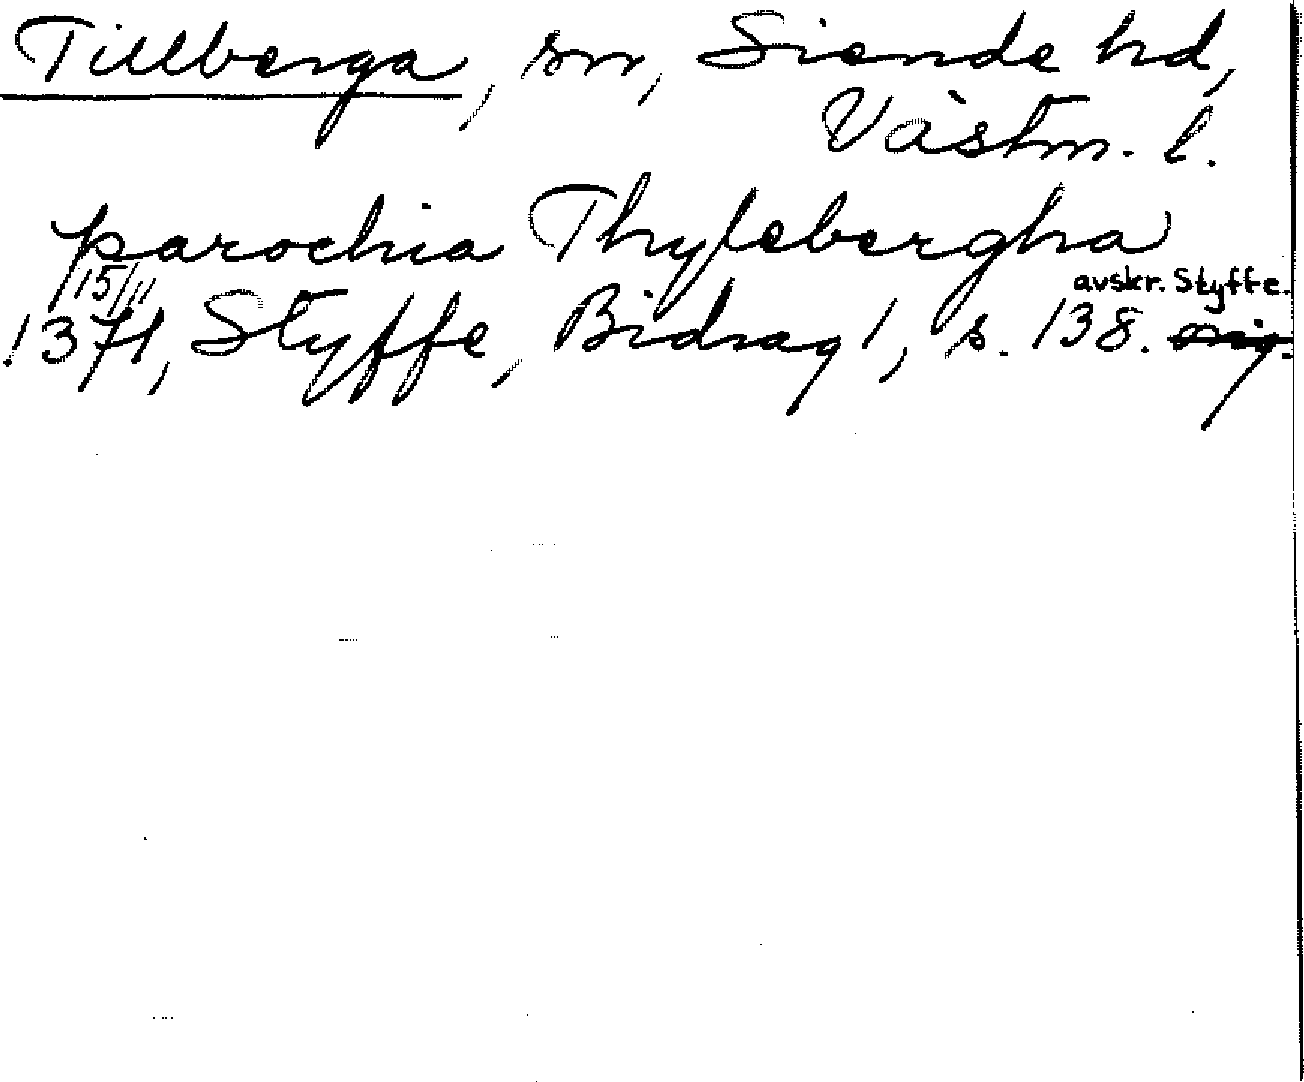 Tillberga, sn, Siende hd,
Västm. l.
parochia Thylebergha
15/11 avskr. Styffe.
1371, Styffe, Bidrag 1, s. 138. orig.